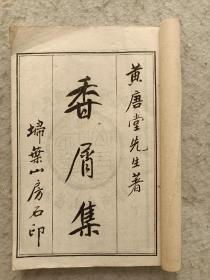 黄唐堂先生著
香屑集
埽葉山房石印